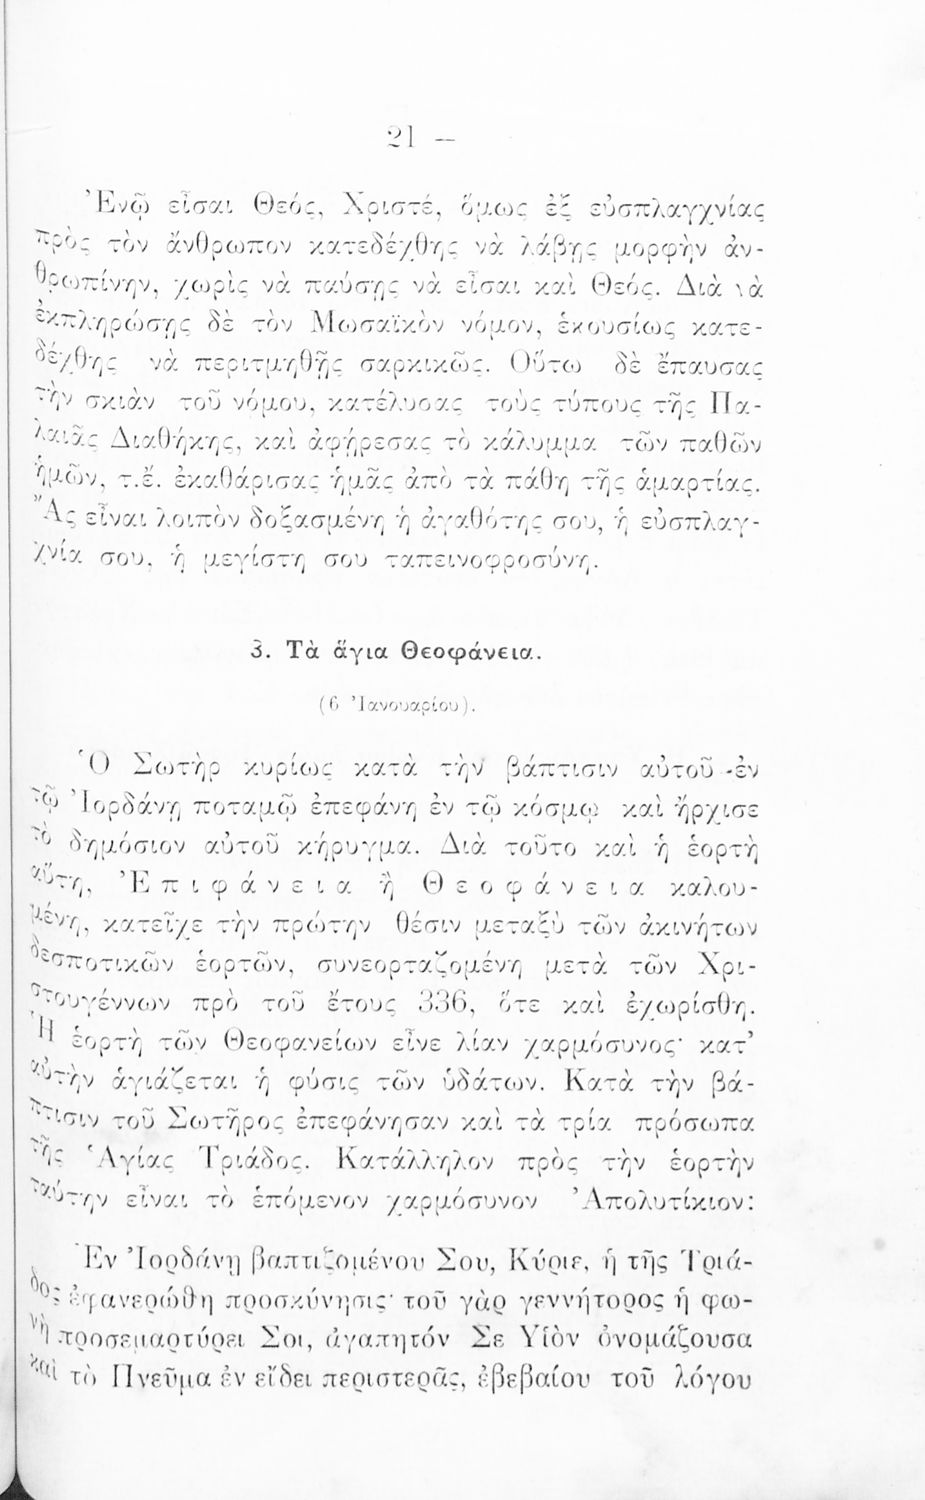 21 —
Ἐνῷ εἶσαι Θεός, Χριστέ, ὅμως ἐξ εὐσπλαγχνίας
πρὸς τὸν ἄνθρωπον κατεδέχθης νὰ λάβῃς μορφὴν ἀν-
θρωπίνην, χωρὶς νὰ παύσῃς νὰ εἶσαι καὶ Θεός. Διὰ νὰ
ἐκπληρώσῃς δὲ τὸν Μωσαϊκὸν νόμον, ἑκουσίως κατε-
δέχθης νὰ περιτμηθῇς σαρκικῶς. Οὕτω δὲ ἔπαυσας
τὴν σκιὰν τοῦ νόμου, κατέλυσας τοὺς τύπους τῆς Πα-
λαιᾶς Διαθήκης, καὶ ἀφῄρεσας τὸ κάλυμμα τῶν παθῶν
ἡμῶν, τ.ἔ. ἐκαθάρισας ἡμᾶς ἀπὸ τὰ πάθη τῆς ἁμαρτίας.
Ἂς εἶναι λοιπὸν δοξασμένη ἡ ἀγαθότης σου, ἡ εὐσπλαγ-
χνία σου, ἡ μεγίστη σου ταπεινοφροσύνη.
3. Τὰ ἅγια Θεοφάνεια.
(6 Ἰανουαρίου).
Ὁ Σωτὴρ κυρίως κατὰ τὴν βάπτισιν αὐτοῦ ἐν
τῷ Ἰορδάνῃ ποταμῷ ἐπεφάνη ἐν τῷ κόσμῳ καὶ ἤρχισε
τὸ δημόσιον αὐτοῦ κήρυγμα. Διὰ τοῦτο καὶ ἡ ἑορτὴ
αὕτη, Ἐπιφάνεια ἢ Θεοφάνεια καλου-
μένη, κατεῖχε τὴν πρώτην θέσιν μεταξὺ τῶν ἀκινήτων
δεσποτικῶν ἑορτῶν, συνεορταζομένη μετὰ τῶν Χρι-
στουγέννων πρὸ τοῦ ἔτους 336, ὅτε καὶ ἐχωρίσθη.
Ἡ ἑορτὴ τῶν Θεοφανείων εἶνε λίαν χαρμόσυνος· κατ’
αὐτὴν ἁγιάζεται ἡ φύσις τῶν ὑδάτων. Κατὰ τὴν βά-
πτισιν τοῦ Σωτῆρος ἐπεφάνησαν καὶ τὰ τρία πρόσωπα
τῆς Ἁγίας Τριάδος. Κατάλληλον πρὸς τὴν ἑορτὴν
ταύτην εἶναι τὸ ἑπόμενον χαρμόσυνον Ἀπολυτίκιον:
Ἐν Ἰορδάνῃ βαπτιζομένου Σου, Κύριε, ἡ τῆς Τριά-
δος ἐφανερώθη προσκύνησις· τοῦ γὰρ γεννήτορος ἡ φω-
νὴ προσεμαρτύρει Σοι, ἀγαπητόν Σε Υἱὸν ὀνομάζουσα
καὶ τὸ Πνεῦμα ἐν εἴδει περιστερᾶς, ἐβεβαίου τοῦ λόγου